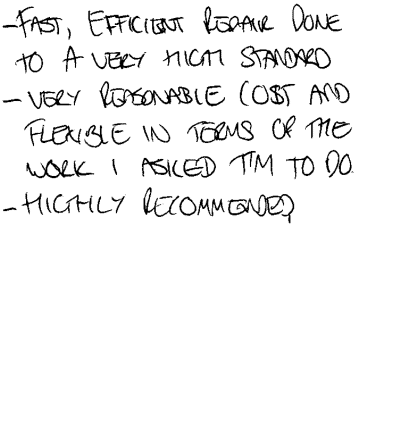 - FAST, EFFICIENT REPAIR DONE
TO A VERY HIGH STANDARD
- VERY REASONABLE COST AND
FLEXIBLE IN TERMS OF THE
WORK I ASKED TIM TO DO.
- HIGHLY RECOMMENDED